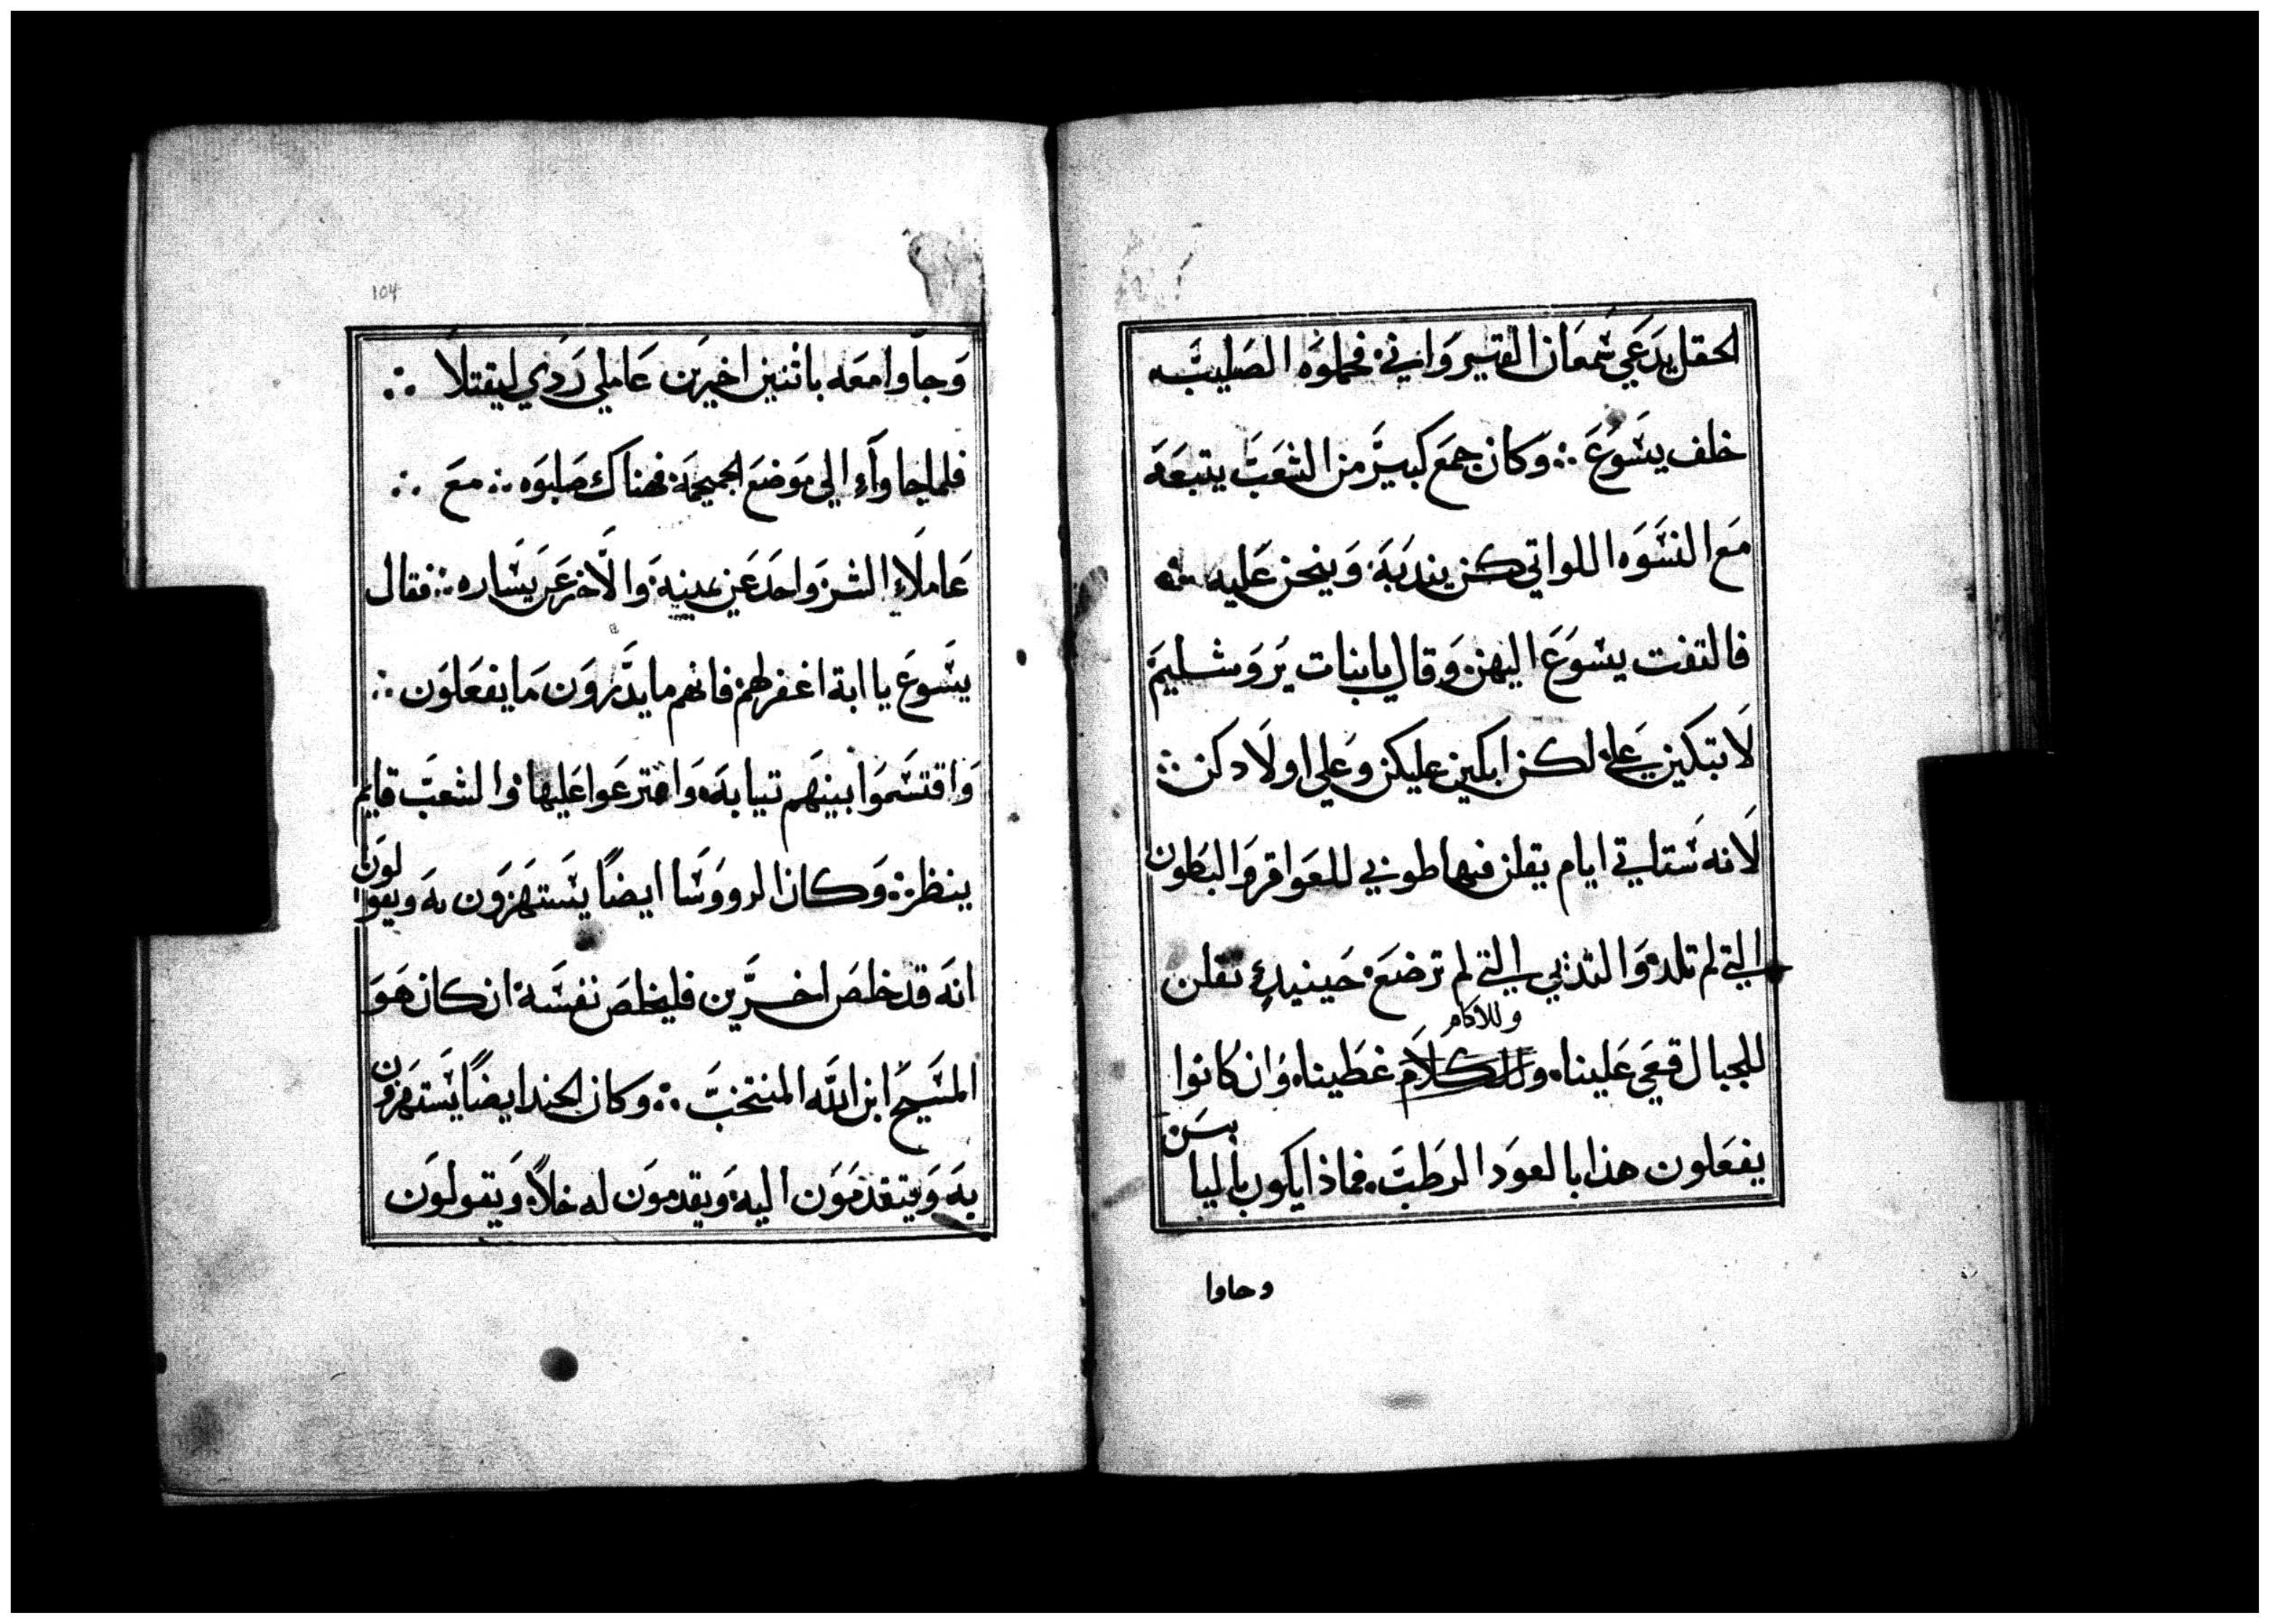 الحقل يدعَي سَمعَان القيسرواني. فحملوَه الصَليبَ
خلف يسَوُعَ ∴ وَكان جمعَ كبيرَ من الشعَبَ يتبعَهَ
مَع النسَوَه اللواتي كن يندبَهَ وَينحن عَليه ∴
فالتفت يسَوَعَ اليهن وَقال يابنات يَروَشليمَ
لَا تبكين عَلي لكن ابكين عليكن وعَلي اولَادكن ∴
لَانه سَتاتي ايام يقلن فيها طوبي للعَواقر وَالبطون
التي لم تلد وَالثدي التي لم ترضعَ حَينيدٍ تقلن
وللاكام
للجبال قعي عَلينا. وللكلَام غطَينا. وَان كانوا
يفعَلون هذا بالعوَد الرطَبَ. فماذا يكون باليا
بسَن
وجاوا
104
وَجاَوا معَه باثنين اخيرَين عَاملي رَدَي ليقتلَا ∴
فلما جاوآءِ الي مَوضعَ الجمجمَه فهناك صَلبوَه ∴ معَ ∴
عَاملَاءِ الشر وَاحدَ عَن يمينهَ وَالَاخر عَن يسَاره ∴ فقال
يسَوعَ يا ابة اغفر لهم فانهم ما يدَرون مَا يفعَلوَن ∴
وَاقتسَموَا بينهَم تيابهَ وَاقترعَوا عَليها وَالشعَبَ قايم
ينظر ∴ وَكان الرووسَا ايضًا يسَتهزوَن بهَ ويقوا
لوَن
انهَ قد خلصَ اخرَين فليخلصَ نفسَهَ ان كان هَوَ
المسَيحَ ابن اللَه المنتخبَ ∴ وكان الجند ايضًا يسَتهزون
بهَ وَيتقدمَوَن اليهَ وَيقدموَن له خلاً وَيقولوَن